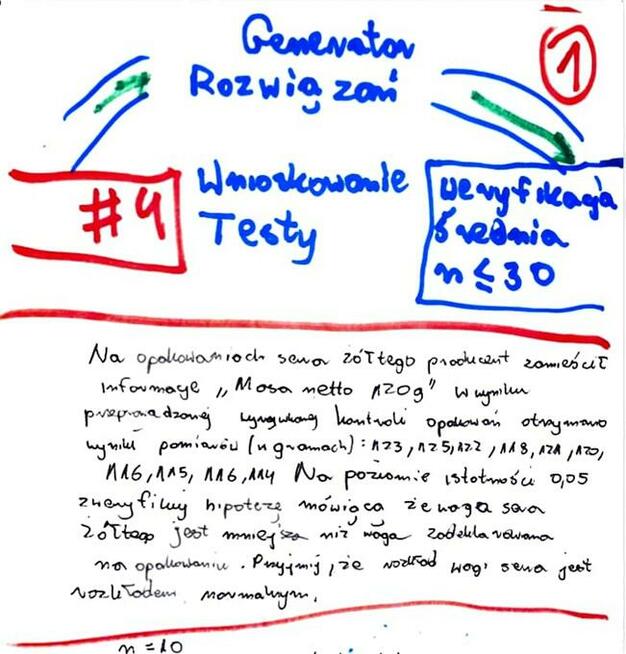 Generator
Rozwiązań
1
#4
Wnioskowanie
Testy
Weryfikacja
średnia
n ≤ 30
Na opakowaniach sera żółtego producent zamieścił
informację „Masa netto 120g" W wyniku
przeprowadzonej wyrywkowej kontroli opakowań otrzymano
wyniki pomiarów (w gramach): 123, 125, 122, 118, 121, 120,
116, 115, 116, 114 Na poziomie istotności 0,05
zweryfikuj hipotezę mówiącą że waga sera
żółtego jest mniejsza niż waga zadeklarowana
na opakowaniu. Przyjmij, że rozkład wagi sera jest
rozkładem normalnym.
n = 10